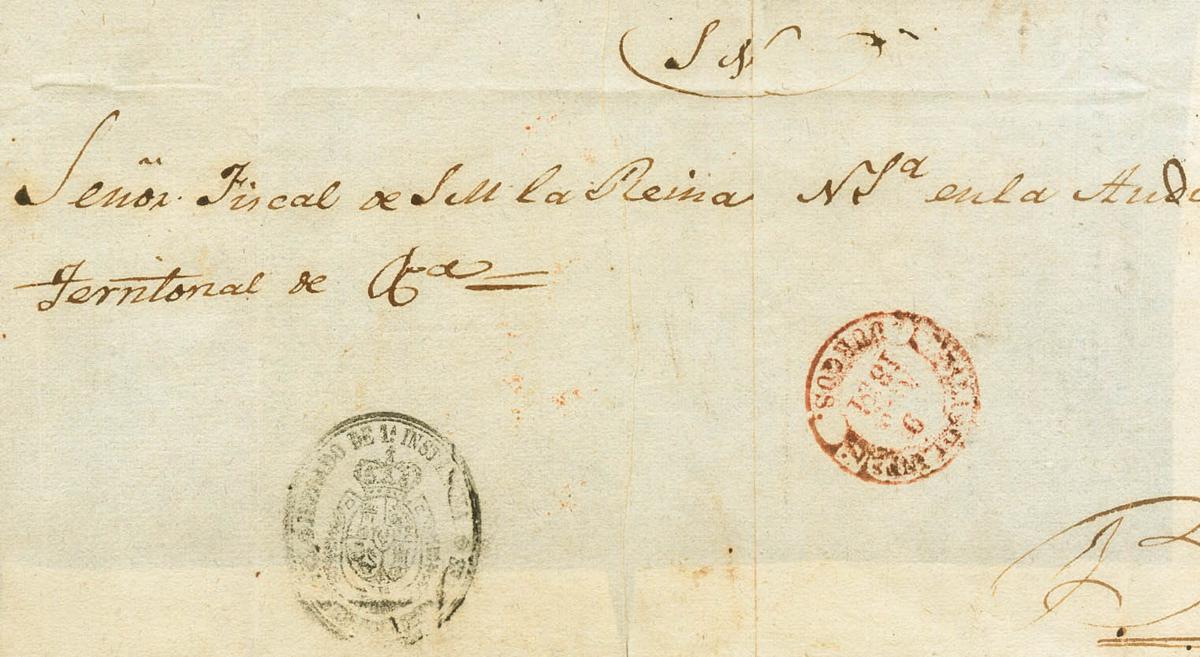 S N
Señor Fiscal de S M la Reina N Sª en la Aud
Territorial de
JUZGADO DE 1ª INST
BURGOS